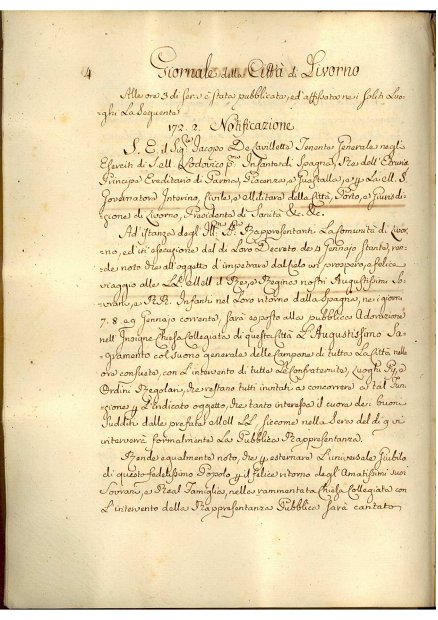 4 Giornale della Città di Livorno
Alle ore 3 di sera è stata pubblicata, ed affissata nei soliti Luo-
ghi La Seguente
172. 2. Notificazione
S. E. il Sig.r Jacopo De Lavillette Tenente Generale negl'
Eserciti di S. M. Lodovico p.mo Infante di Spagna, Re dell'Etruria
Principe Ereditario di Parma, Piacenza, e Guastalla, e p. La M. S.
Governatore Interino, Civile, e Militare della Città, Porto, e Giurisdi-
zione di Livorno, Presidente di Sanità &c. &c.
Ad istanza degl' Ill.mi SS.ri Rappresentanti La Comunità di Livor-
no, ed in esecuzione del di Loro Decreto de 4 Gennajo stante, ren-
de noto che all'oggetto d'impetrare dal Cielo un prospero, e felice
viaggio alle LL. MM. il Re, e Regina nostri Augustissimi So-
vrani, e RR. Infanti nel Loro ritorno dalla Spagna, nei giorni
7. 8. e 9 Gennajo corrente, sarà esposto alla pubblica Adorazione
nell'Insigne Chiesa Collegiata di questa Città L'Augustissimo Sa-
gramento col suono generale delle Campane di tutta La Città nelle
ore consuete, con L'intervento di tutte Le Confraternite, Luoghi Pij, e
Ordini Regolari, che restano tutti invitati a concorrere a tal Fun-
zione p. L'indicato oggetto, che tanto interessa il cuore dei buoni
Sudditi delle prefate MM. LL. siccome nella Sera del dì 9 v'
interverrà formalmente La Pubblica Rappresentanza.
Rende egualmente noto, che p. esternare L'universale Giubilo
di questo fedelissimo Popolo p. il felice ritorno degl'Amatissimi suoi
Sovrani, e Real Famiglia, nella rammentata Chiesa Collegiata con
L'intervento della Rappresentanza Pubblica sarà cantato